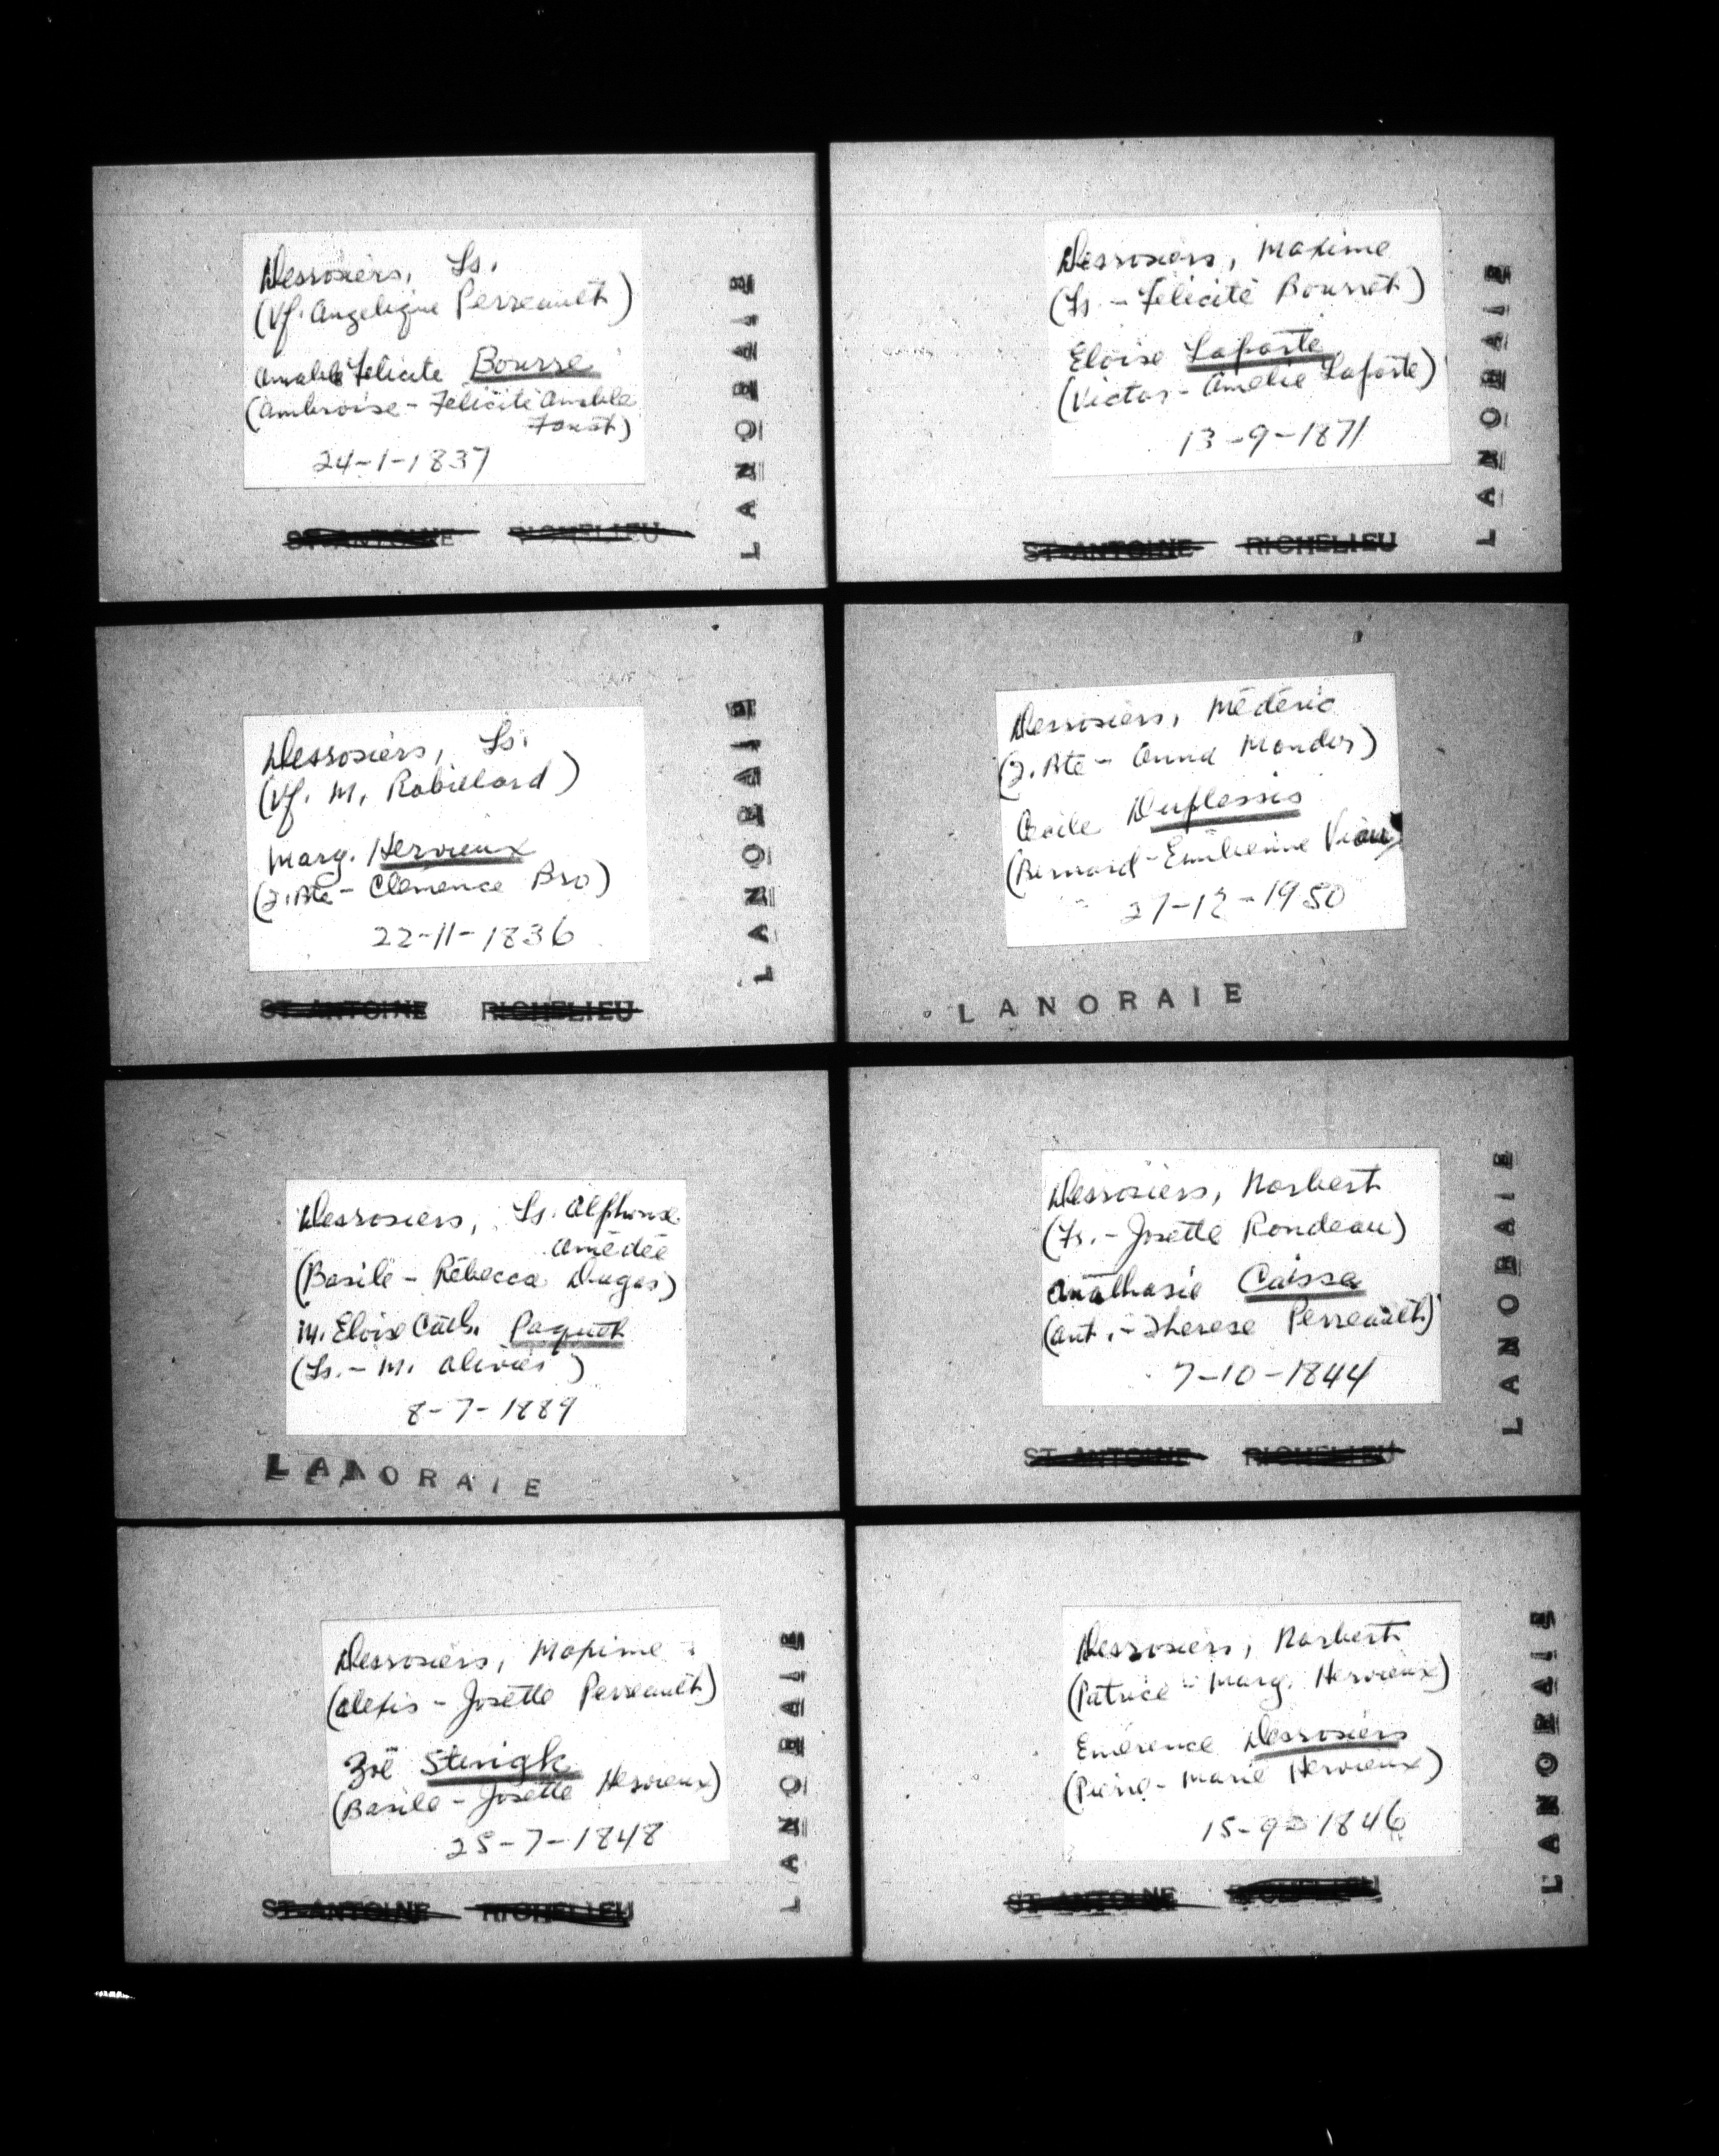 Desrosiers, Ls.
(Vf. Angelique Perreault)
Amable Felicite Bourse
(Ambroise - Félicité Amable
24-1-1837
ST-ANTOINE RICHELIEU
LANORAIE
Desrosiers, Maxime
(Ls. - Félicité Bourret)
Eloise Laporte
(Victor - Amelie Laporte)
13-9-1871
ST-ANTOINE RICHELIEU
LANORAIE
Desrosiers, Ls.
(Vf. M. Robillard)
Marg. Hervieux
(J. Bte - Clémence Bro)
22-11-1836
ST-ANTOINE RICHELIEU
LANORAIE
Desrosiers, Médéric
(J. Bte - Anna Mondor)
Cécile Duplessis
(Bernard - Emilienne Viau)
27-12-1950
LANORAIE
Desrosiers, Ls. Alphonse
Amédée
(Basile - Rébecca Dugas)
M. Eloise Cath. Paquet
(Ls. - M. Olivier)
8-7-1889
LANORAIE
Desrosiers, Norbert
(Fs. - Josette Rondeau)
Anathasie Caisse
(Ant. - Therese Perreault)
7-10-1844
ST-ANTOINE RICHELIEU
LANORAIE
Desrosiers, Maxime
(Alexis - Josette Perreault)
Zoë Sterigk
(Basile - Josette Hervieux)
25-7-1848
ST-ANTOINE RICHELIEU
LANORAIE
Desrosiers, Norbert
(Patrice - Marg. Hervieux)
Emérence Desrosiers
(Pierre - Marie Hervieux)
15-9-1846
ST-ANTOINE RICHELIEU
LANORAIE